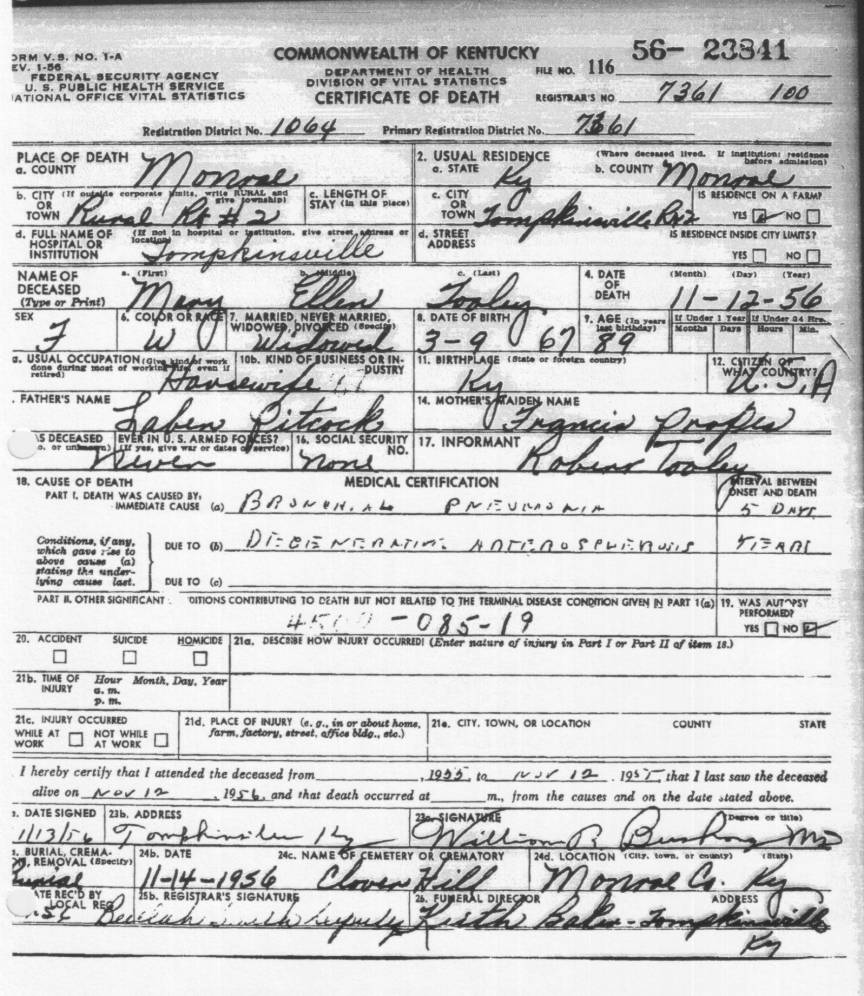 ORM V.S. NO. 1-A
EV. 1-56
FEDERAL SECURITY AGENCY
U. S. PUBLIC HEALTH SERVICE
NATIONAL OFFICE VITAL STATISTICS
COMMONWEALTH OF KENTUCKY
DEPARTMENT OF HEALTH
DIVISION OF VITAL STATISTICS
CERTIFICATE OF DEATH
FILE NO. 116 56- 23841
REGISTRAR'S NO. 7361 100
Registration District No. 1064 Primary Registration District No. 7361
PLACE OF DEATH
a. COUNTY Monroe
2. USUAL RESIDENCE (Where deceased lived. If institution: residence before admission)
a. STATE Ky b. COUNTY Monroe
b. CITY (If outside corporate limits, write RURAL and give township)
OR TOWN Rural Rt #2
c. LENGTH OF STAY (in this place)
c. CITY OR TOWN Tompkinsville
IS RESIDENCE ON A FARM?
YES NO
d. FULL NAME OF HOSPITAL OR INSTITUTION (If not in hospital or institution, give street address or location)
Tompkinsville
d. STREET ADDRESS
IS RESIDENCE INSIDE CITY LIMITS?
YES NO
NAME OF DECEASED (Type or Print)
a. (First) b. (Middle) c. (Last)
Mary Ellen Tooley
4. DATE OF DEATH (Month) (Day) (Year)
11-12-56
SEX F
6. COLOR OR RACE W
7. MARRIED, NEVER MARRIED, WIDOWED, DIVORCED (Specify) Widowed
8. DATE OF BIRTH 3-9 67
9. AGE (In years last birthday) 89
If Under 1 Year If Under 24 Hrs.
Months Days Hours Min.
a. USUAL OCCUPATION (Give kind of work done during most of working life, even if retired) Housewife
10b. KIND OF BUSINESS OR INDUSTRY
11. BIRTHPLACE (State or foreign country) Ky
12. CITIZEN OF WHAT COUNTRY? U.S.A
FATHER'S NAME
Laben Pitcock
14. MOTHER'S MAIDEN NAME
Francis Propes
AS DECEASED EVER IN U. S. ARMED FORCES?
o. or unknown) (If yes, give war or dates of service)
Never
16. SOCIAL SECURITY NO. None
17. INFORMANT
Tooley
18. CAUSE OF DEATH MEDICAL CERTIFICATION
INTERVAL BETWEEN ONSET AND DEATH
PART I. DEATH WAS CAUSED BY:
IMMEDIATE CAUSE (a) BRONCHIAL PNEUMONIA 5 DAYS
Conditions, if any, which gave rise to above cause (a) stating the underlying cause last.
DUE TO (b) YEARS
DUE TO (c)
PART II. OTHER SIGNIFICANT DITIONS CONTRIBUTING TO DEATH BUT NOT RELATED TO THE TERMINAL DISEASE CONDITION GIVEN IN PART 1(a)
-085-19
19. WAS AUTOPSY PERFORMED?
YES NO
20. ACCIDENT SUICIDE HOMICIDE
21a. DESCRIBE HOW INJURY OCCURRED! (Enter nature of injury in Part I or Part II of item 18.)
21b. TIME OF INJURY Hour Month, Day, Year
a. m.
p. m.
21c. INJURY OCCURRED
WHILE AT WORK NOT WHILE AT WORK
21d. PLACE OF INJURY (e. g., in or about home, farm, factory, street, office bldg., etc.)
21e. CITY, TOWN, OR LOCATION COUNTY STATE
I hereby certify that I attended the deceased from , 1955, to Nov 12 , that I last saw the deceased
alive on Nov 12 , 1956, and that death occurred at m., from the causes and on the date stated above.
DATE SIGNED 23b. ADDRESS 23c. SIGNATURE (Degree or title)
1/13/56 Ky William MD
BURIAL, CREMA-
REMOVAL (Specify)
Burial
24b. DATE 11-14-1956
24c. NAME OF CEMETERY OR CREMATORY Clover Hill
24d. LOCATION (City, town, or county) (State)
Monroe Co. Ky
ATE REC'D BY LOCAL REG.
56
25b. REGISTRAR'S SIGNATURE
Beulah Smith Deputy
26. FUNERAL DIRECTOR ADDRESS
Keith Baker - Tompkinsville
Ky